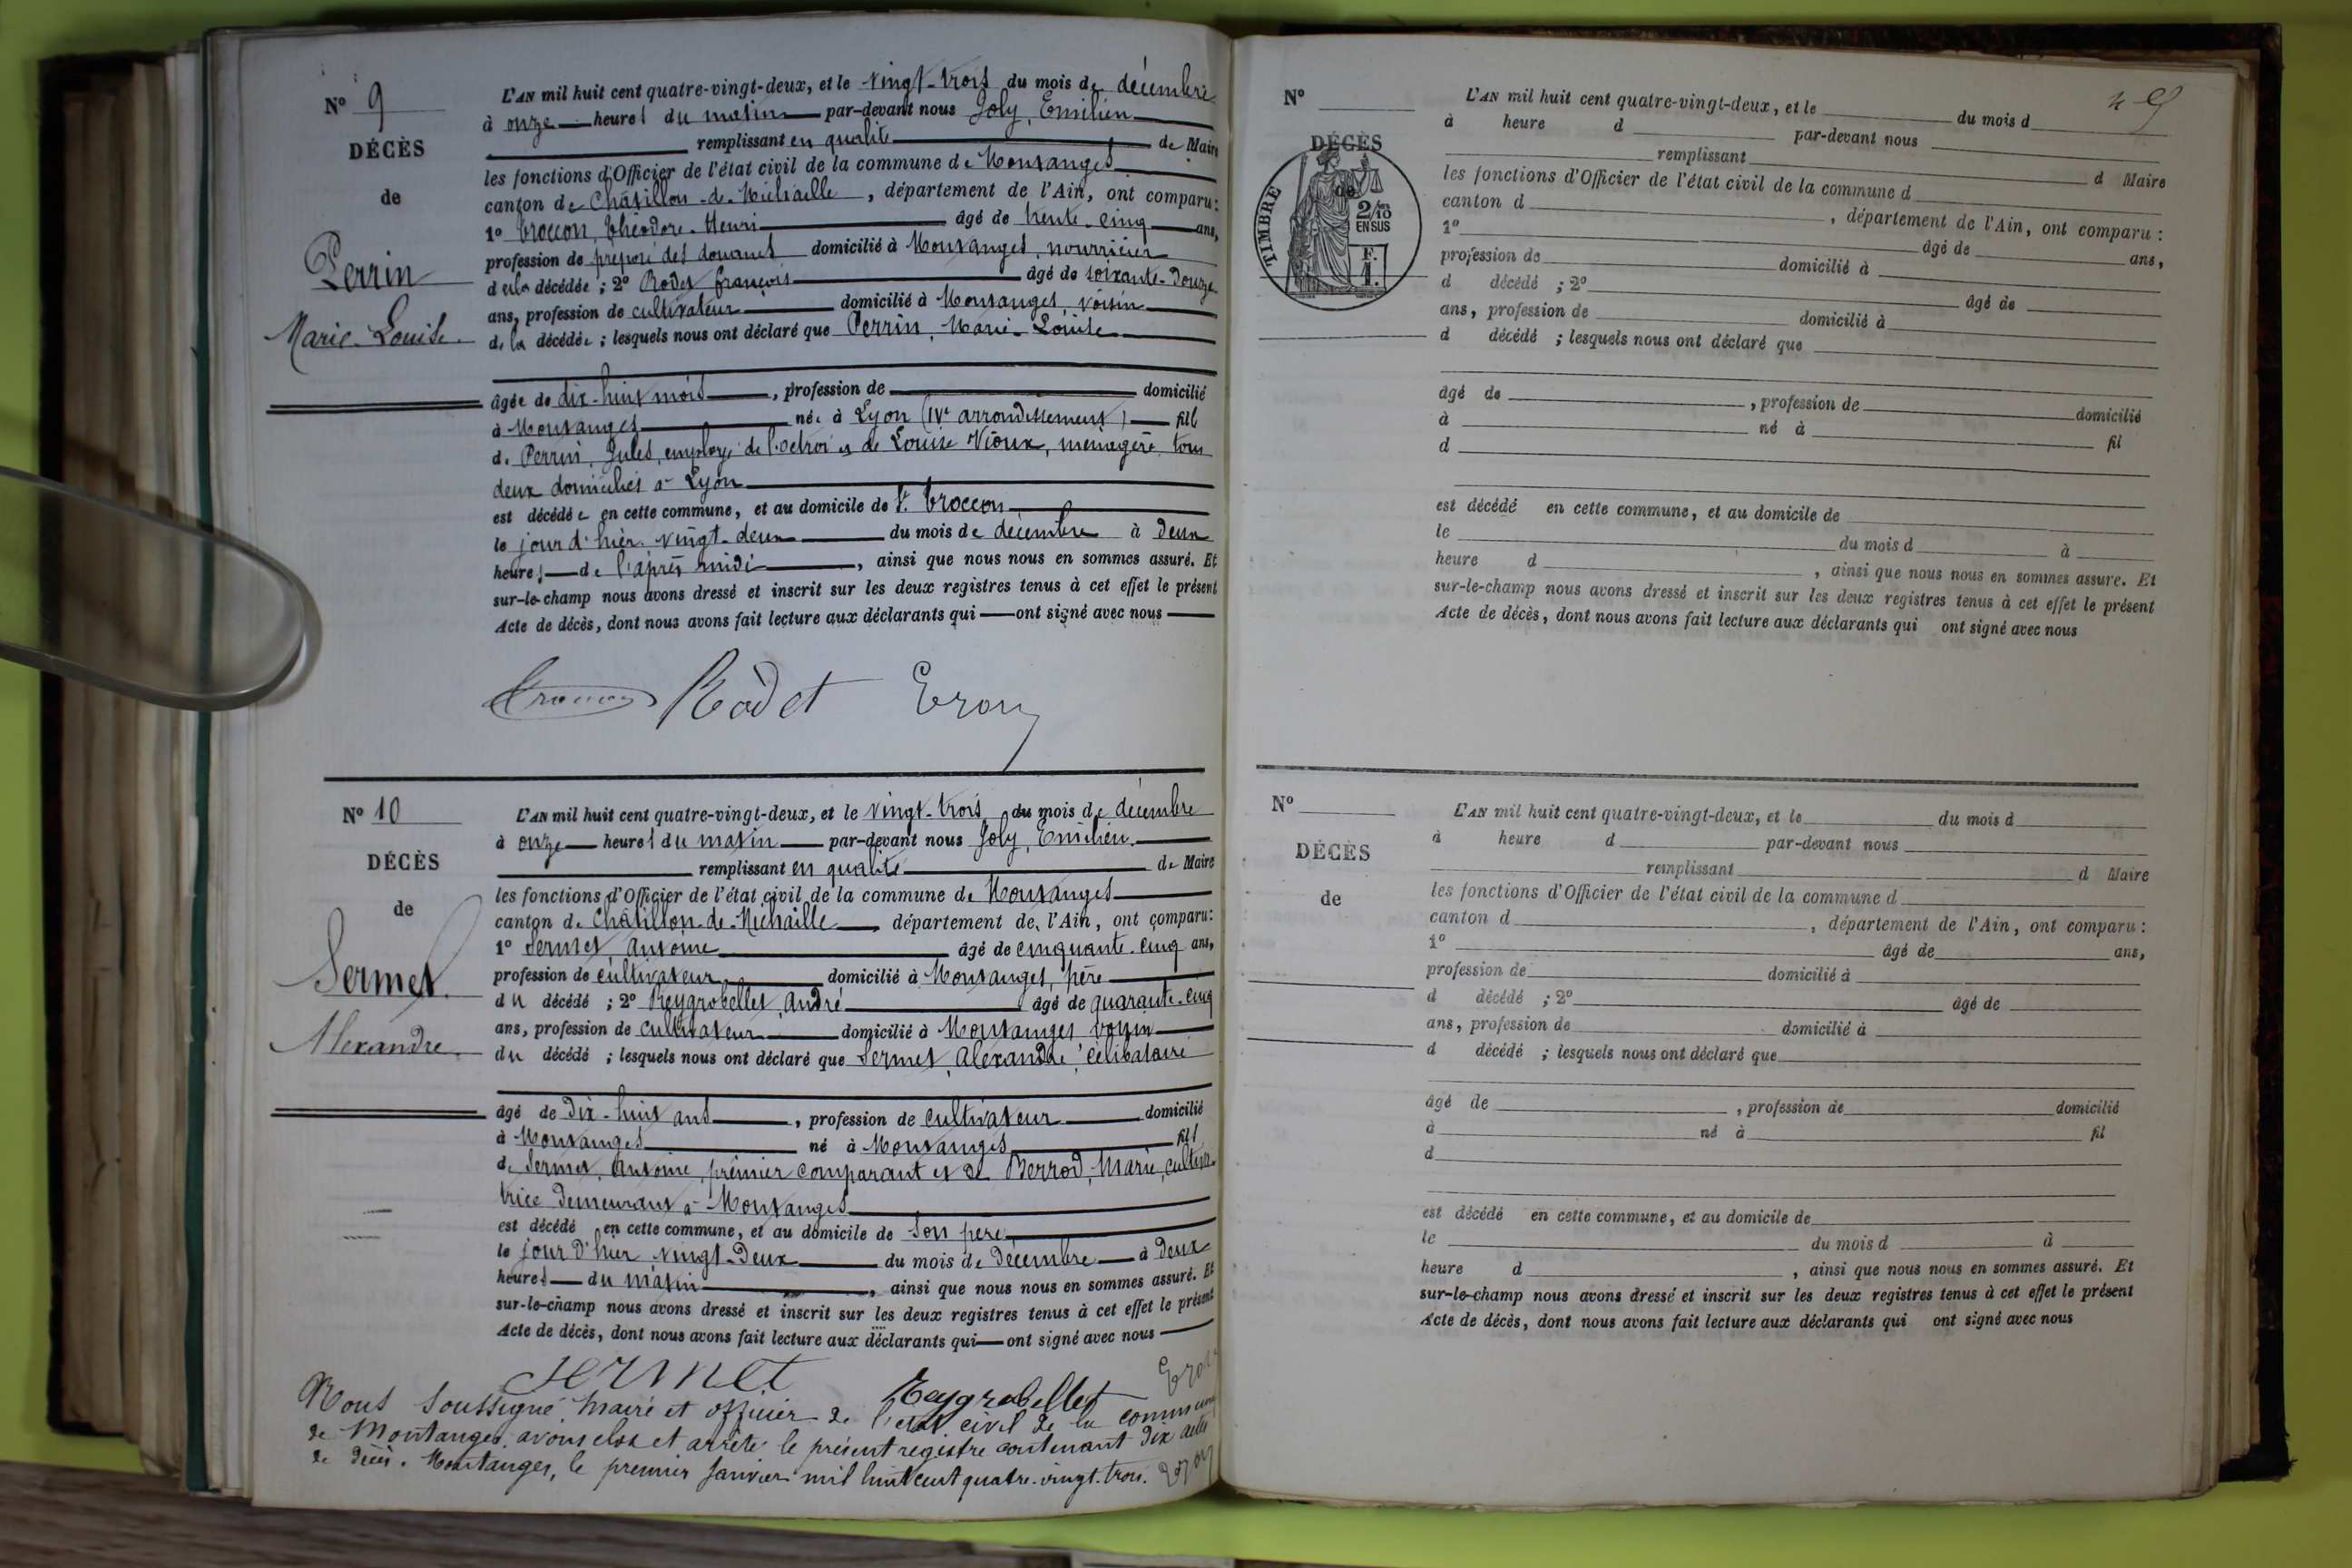 N° 9
DÉCÈS
de
Perrin
Marie-Louise.
L'AN mil huit cent quatre-vingt-deux, et le vingt-trois du mois de décembre
à onze heures du matin par-devant nous Joly, Emilien
remplissant en qualité de Maire
les fonctions d'Officier de l'état civil de la commune de Montanges
canton de Châtillon-de-Michaille, département de l'Ain, ont comparu:
1° Troccon, Théodore-Henri âgé de trente-cinq ans,
profession de préposé des douanes domicilié à Montanges, nourricier
de la décédée; 2° Rodet François âgé de soixante-douze
ans, profession de cultivateur domicilié à Montanges, voisin
de la décédée; lesquels nous ont déclaré que Perrin, Marie-Louise
âgée de dix-huit mois, profession de domicilié
à Montanges née à Lyon (IVe arrondissement) fille
de Perrin, Jules, employé de l'octroi et de Louise Vioux, ménagère, tous
deux domiciliés à Lyon
est décédée en cette commune, et au domicile de Sr. Troccon
le jour d'hier vingt-deux du mois de décembre à deux
heures de l'après midi, ainsi que nous nous en sommes assuré. Et
sur-le-champ nous avons dressé et inscrit sur les deux registres tenus à cet effet le présent
Acte de décès, dont nous avons fait lecture aux déclarants qui ont signé avec nous
Rodet
N° 10
DÉCÈS
de
Sermet
Alexandre.
L'AN mil huit cent quatre-vingt-deux, et le vingt-trois du mois de décembre
à onze heures du matin par-devant nous Joly, Emilien.
remplissant en qualité de Maire
les fonctions d'Officier de l'état civil de la commune de Montanges
canton de Châtillon-de-Michaille, département de l'Ain, ont comparu:
1° Sermet, Antoine âgé de cinquante-cinq ans,
profession de cultivateur domicilié à Montanges, père
du décédé; 2° Reygrobellet, André âgé de quarante-cinq
ans, profession de cultivateur domicilié à Montanges voisin
du décédé; lesquels nous ont déclaré que Sermet, Alexandre, célibataire
âgé de dix-huit ans, profession de cultivateur domicilié
à Montanges né à Montanges fils
de Sermet, Antoine, premier comparant et de Berrod, Marie, cultiva-
trice demeurant à Montanges
est décédé en cette commune, et au domicile de son père
le jour d'hier vingt-deux du mois de décembre à deux
heures du matin, ainsi que nous nous en sommes assuré. Et
sur-le-champ nous avons dressé et inscrit sur les deux registres tenus à cet effet le présent
Acte de décès, dont nous avons fait lecture aux déclarants qui ont signé avec nous
Sermet Reygrobellet
Nous soussigné, maire et officier de l'état civil de la commune
de Montanges, avons clos et arrêté le présent registre contenant dix actes
de décès. Montanges, le premier janvier mil huit cent quatre-vingt-trois.
N°
DÉCÈS
de
TIMBRE
2/10 EN SUS
F. 1.
L'AN mil huit cent quatre-vingt-deux, et le du mois d
à heure d par-devant nous
remplissant d Maire
les fonctions d'Officier de l'état civil de la commune d
canton d, département de l'Ain, ont comparu:
1° âgé de ans,
profession de domicilié à
d décédé; 2° âgé de
ans, profession de domicilié à
d décédé; lesquels nous ont déclaré que
âgé de, profession de domicilié
à né à fil
d
est décédé en cette commune, et au domicile de
le du mois d à
heure d, ainsi que nous nous en sommes assuré. Et
sur-le-champ nous avons dressé et inscrit sur les deux registres tenus à cet effet le présent
Acte de décès, dont nous avons fait lecture aux déclarants qui ont signé avec nous
N°
DÉCÈS
de
L'AN mil huit cent quatre-vingt-deux, et le du mois d
à heure d par-devant nous
remplissant d Maire
les fonctions d'Officier de l'état civil de la commune d
canton d, département de l'Ain, ont comparu:
1° âgé de ans,
profession de domicilié à
d décédé; 2° âgé de
ans, profession de domicilié à
d décédé; lesquels nous ont déclaré que
âgé de, profession de domicilié
à né à fil
d
est décédé en cette commune, et au domicile de
le du mois d à
heure d, ainsi que nous nous en sommes assuré. Et
sur-le-champ nous avons dressé et inscrit sur les deux registres tenus à cet effet le présent
Acte de décès, dont nous avons fait lecture aux déclarants qui ont signé avec nous